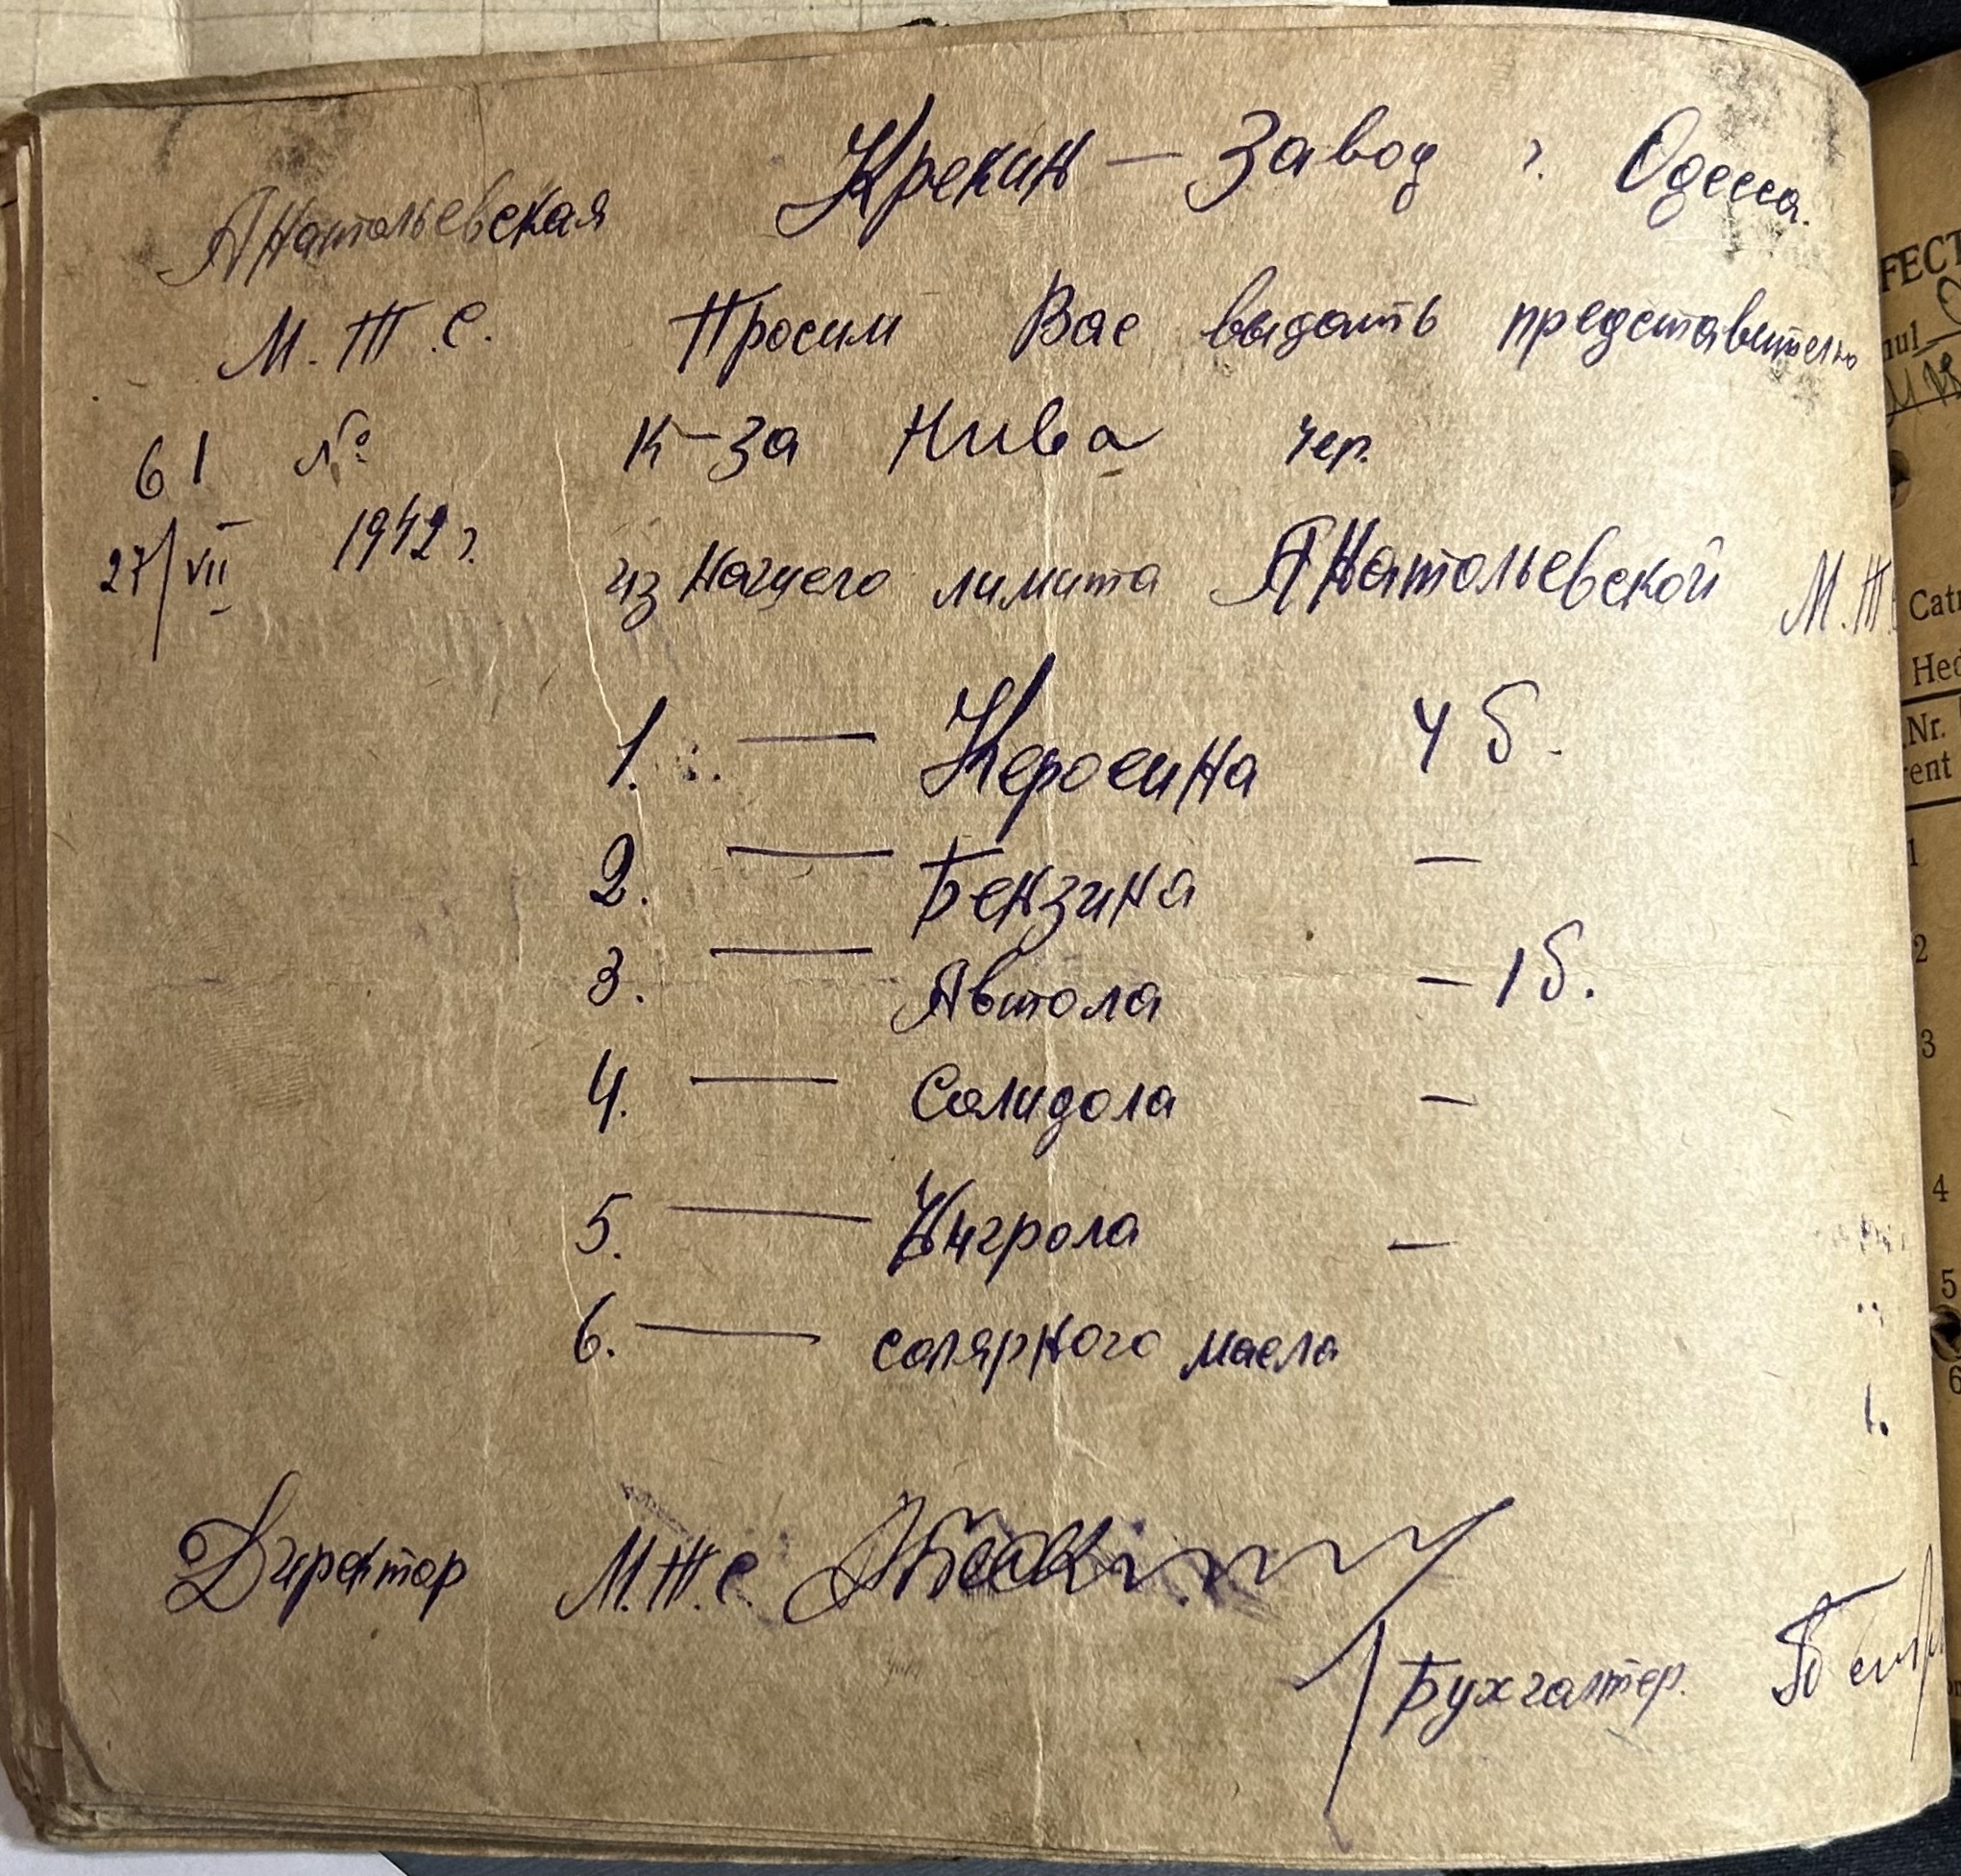 Крекин — Завод г. Одесса.
Анатольевская
М.Т.С.
Просим Вас выдать представителю
61 №
к-за Нива чер.
27/VII 1942 г.
из нашего лимита Анатольевской М.Т.
1. — Керосина 4 б.
2. — Бензина —
3. — Автола — 1 б.
4. — Солидола —
5. — Нигрола —
6. — солярного масла
Директор М.Т.С.
Бухгалтер.
FECT
nul
Cat
Hed
Nr.
rent
1
2
3
4
5
6